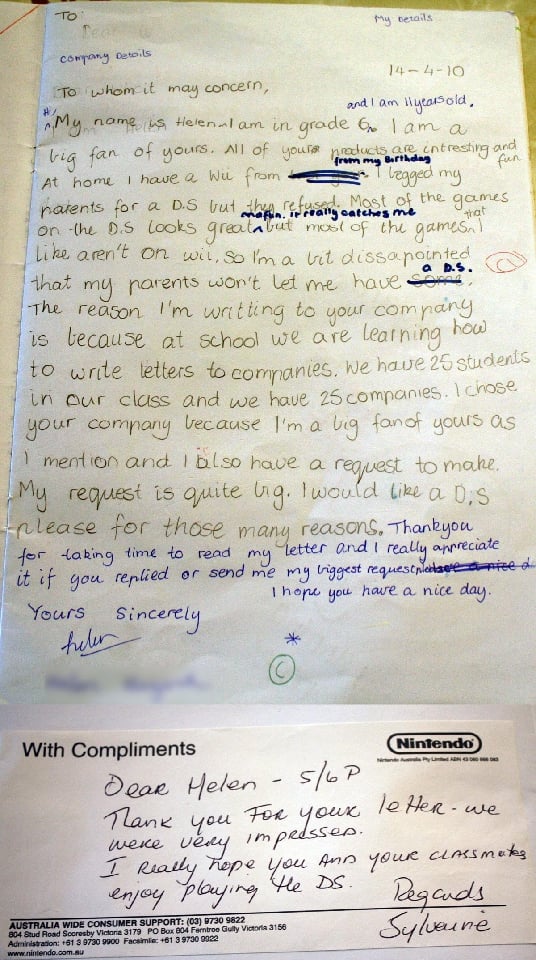 To:
My Details
Company Details
14-4-10
To whom it may concern,
and I am 11 years old.
My name is Helen. I am in grade 6. I am a
big fan of yours. All of yours products are intresting and fun
from my Birthday
At home I have a Wii from I begged my
parents for a D.S but they refused. Most of the games
it really catches me
on the D.S looks great but most of the games that I
like aren't on wii, so I'm a bit dissapointed
a D.S.
that my parents won't let me have some.
The reason I'm writting to your company
is because at school we are learning how
to write letters to companies. We have 25 students
in our class and we have 25 companies. I chose
your company because I'm a big fan of yours as
I mention and I also have a request to make.
My request is quite big. I would like a D.S
please for those many reasons. Thankyou
for taking time to read my letter and I really appreciate
it if you replied or send me my biggest request have a nice d
I hope you have a nice day.
Yours Sincerely
helen
*
C
With Compliments
Nintendo
Nintendo Australia Pty Limited ABN 43 060 566 083
Dear Helen - 5/6P
Thank you for your letter - we
were very impressed.
I really hope you and your classmates
enjoy playing the DS.
Regards
Sylvaine
AUSTRALIA WIDE CONSUMER SUPPORT: (03) 9730 9822
804 Stud Road Scoresby Victoria 3179 PO Box 804 Ferntree Gully Victoria 3156
Administration: +61 3 9730 9900 Facsimile: +61 3 9730 9922
www.nintendo.com.au